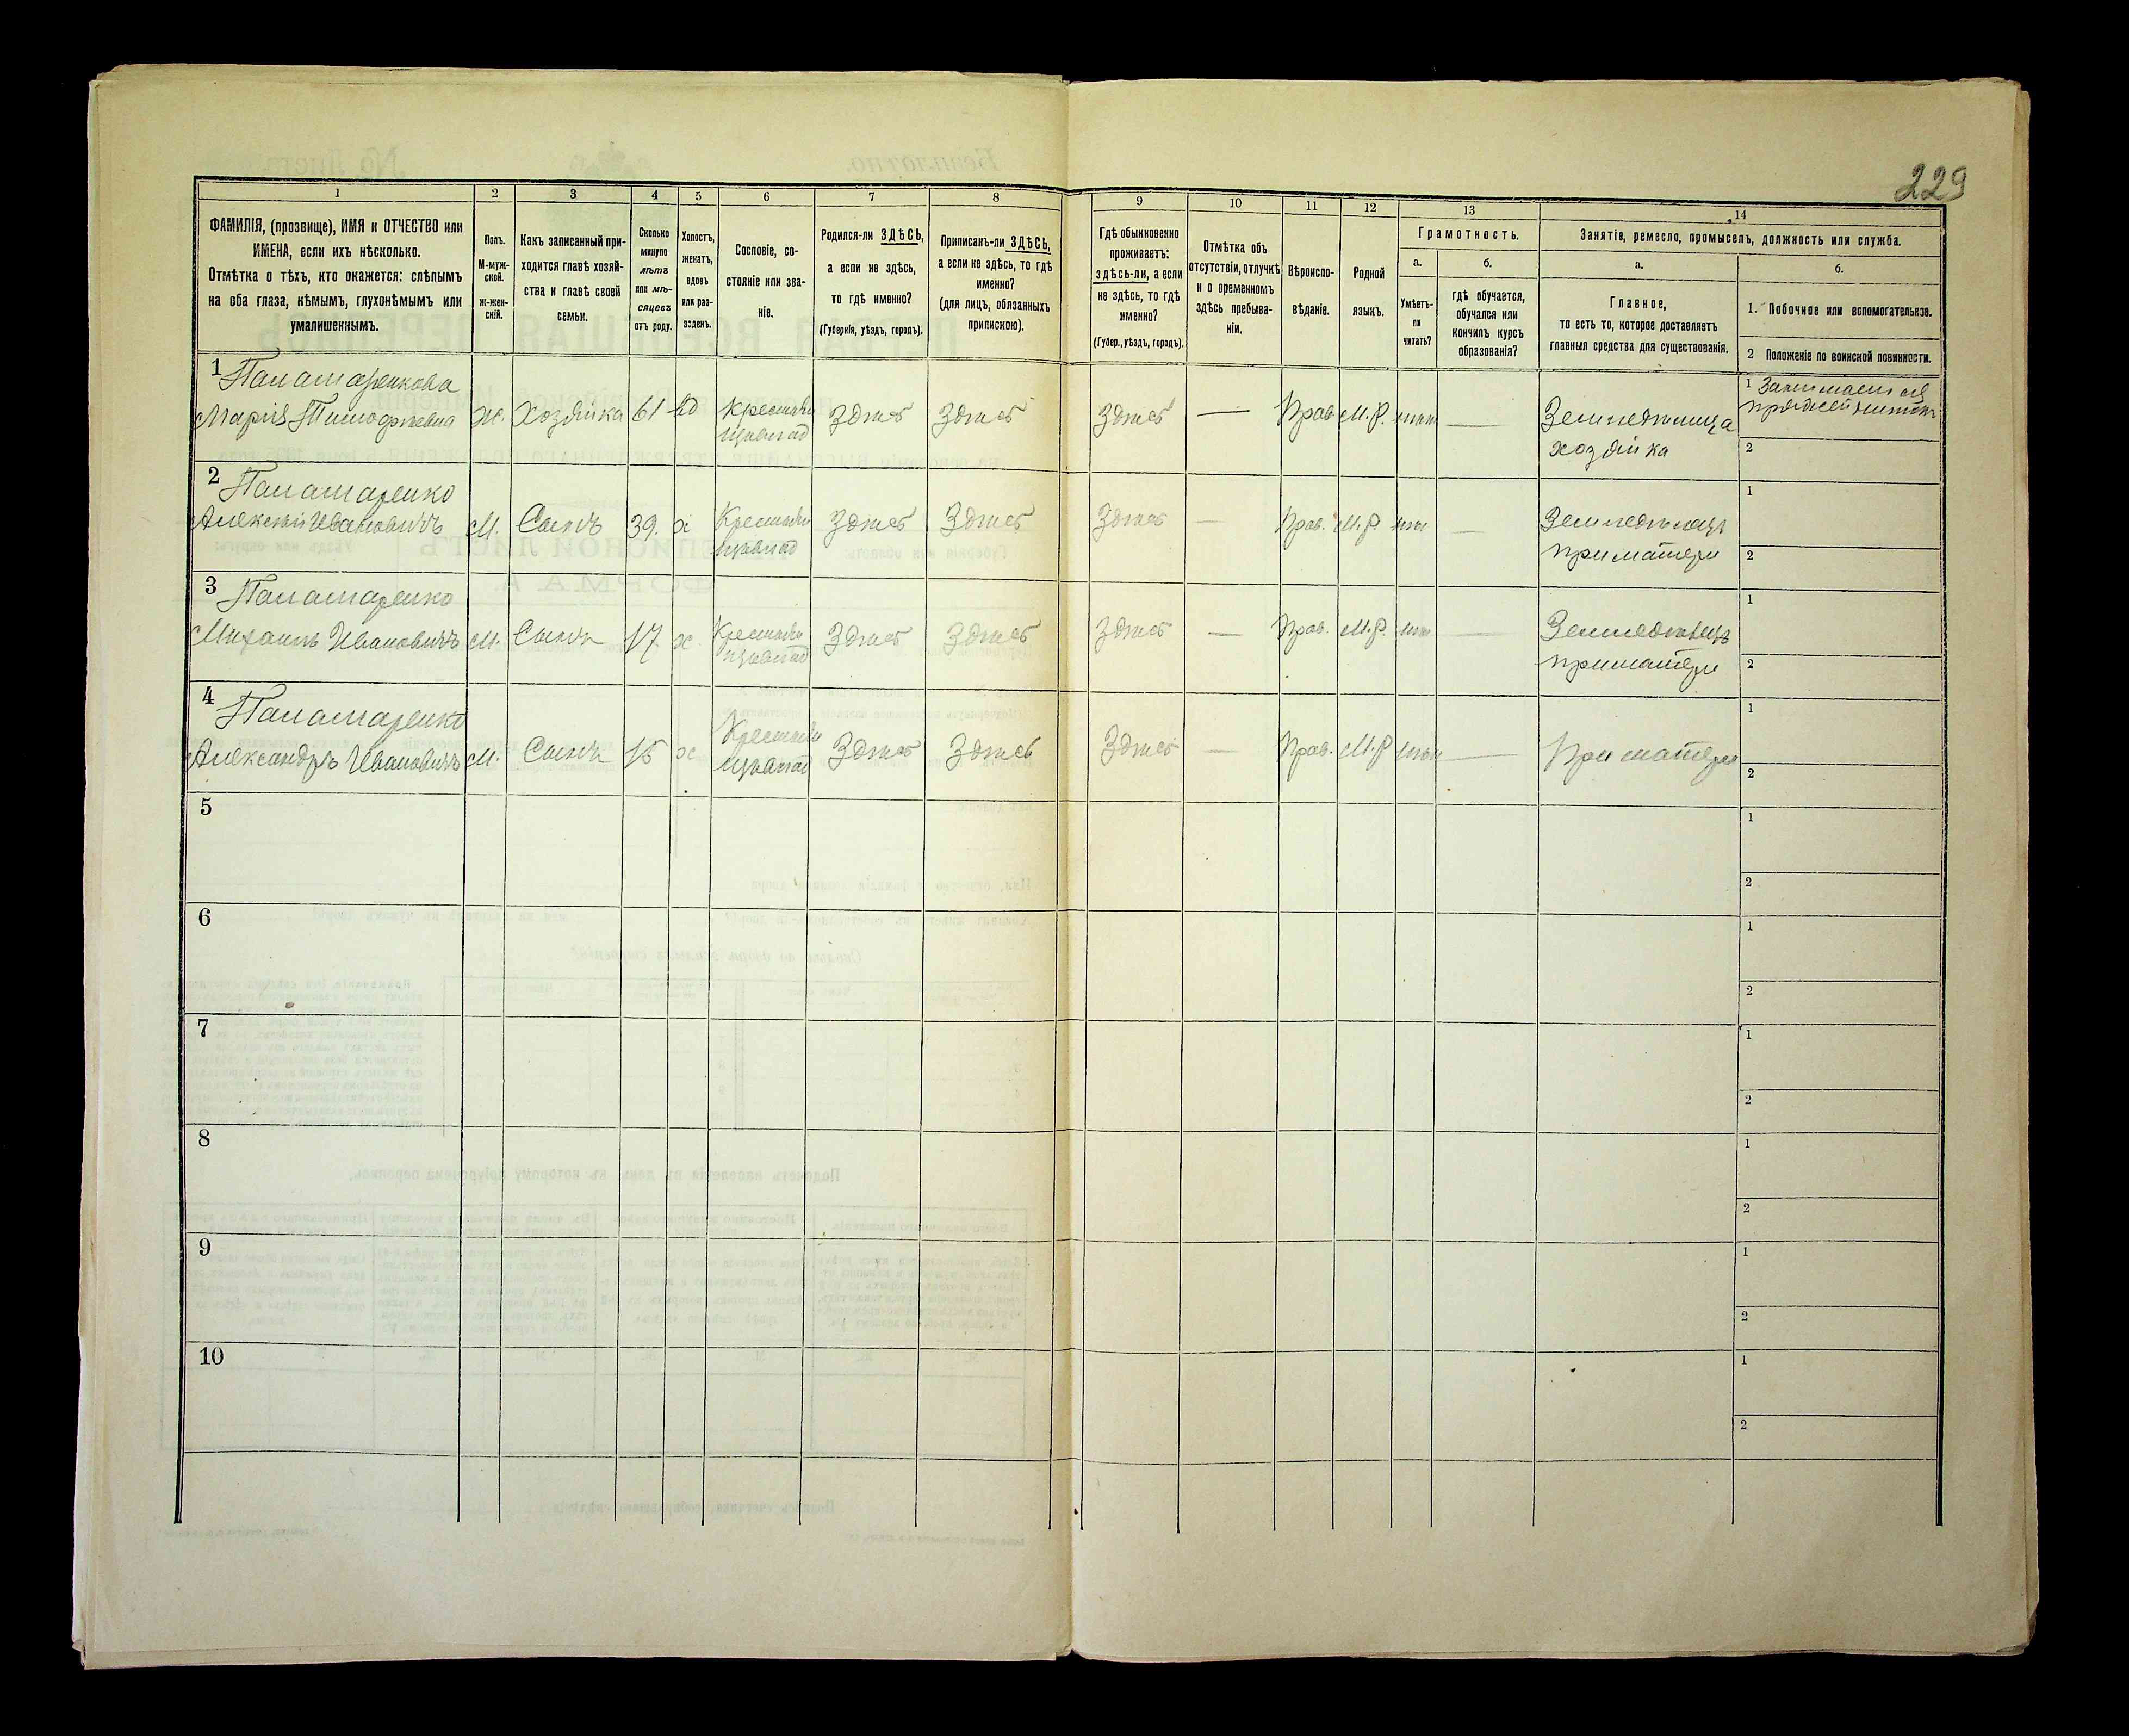 229
1 2 3 4 5 6 7 8 9 10 11 12 13 14
ФАМИЛІЯ, (прозвище), ИМЯ и ОТЧЕСТВО или
ИМЕНА, если ихъ нѣсколько.
Отмѣтка о тѣхъ, кто окажется: слѣпымъ
на оба глаза, нѣмымъ, глухонѣмымъ или
умалишеннымъ.
Полъ.
М-муж-
ской.
ж-жен-
скій.
Какъ записанный при-
ходится главѣ хозяй-
ства и главѣ своей
семьи.
Сколько
минуло
лѣтъ
или мѣ-
сяцевъ
отъ роду.
Холостъ,
женатъ,
вдовъ
или раз-
веденъ.
Сословіе, со-
стояніе или зва-
ніе.
Родился-ли ЗДѢСЬ,
а если не здѣсь,
то гдѣ именно?
(Губернія, уѣздъ, городъ).
Приписанъ-ли ЗДѢСЬ,
а если не здѣсь, то гдѣ
именно?
(для лицъ, обязанныхъ
припискою).
Гдѣ обыкновенно
проживаетъ:
здѣсь-ли, а если
не здѣсь, то гдѣ
именно?
(Губер., уѣздъ, городъ).
Отмѣтка объ
отсутствіи, отлучкѣ
и о временномъ
здѣсь пребыва-
ніи.
Вѣроиспо-
вѣданіе.
Родной
языкъ.
Грамотность.
а.
Умѣетъ-
ли
читать?
б.
гдѣ обучается,
обучался или
кончилъ курсъ
образованія?
Занятіе, ремесло, промыселъ, должность или служба.
а.
Главное,
то есть то, которое доставляетъ
главныя средства для существованія.
б.
1. Побочное или вспомогательное.
2 Положеніе по воинской повинности.
1 Панамаренкова
Марія Тимофѣевна Ж. Хозяйка 61 вд Крестьян Здѣсь Здѣсь Здѣсь — Прав. М.Р. нѣт —
Земледѣлица
хозяйка
1 Занимается
пряжей нитокъ
2
2 Панамаренко
Алексѣй Ивановичъ М. Сынъ 39. х Крестьян Здѣсь Здѣсь Здѣсь — Прав. М.Р. нѣт —
Земледѣлецъ
при матери
1
2
3 Панамаренко
Михаилъ Ивановичъ М. Сынъ 17 х. Крестьян Здѣсь Здѣсь Здѣсь — Прав. М.Р. нѣт —
Земледѣлецъ
при матери
1
2
4 Панамаренко
Александръ Ивановичъ М. Сынъ 15 х Крестьян Здѣсь Здѣсь Здѣсь — Прав. М.Р нѣт —
При матери
1
2
5
1
2
6
1
2
7
1
2
8
1
2
9
1
2
10
1
2